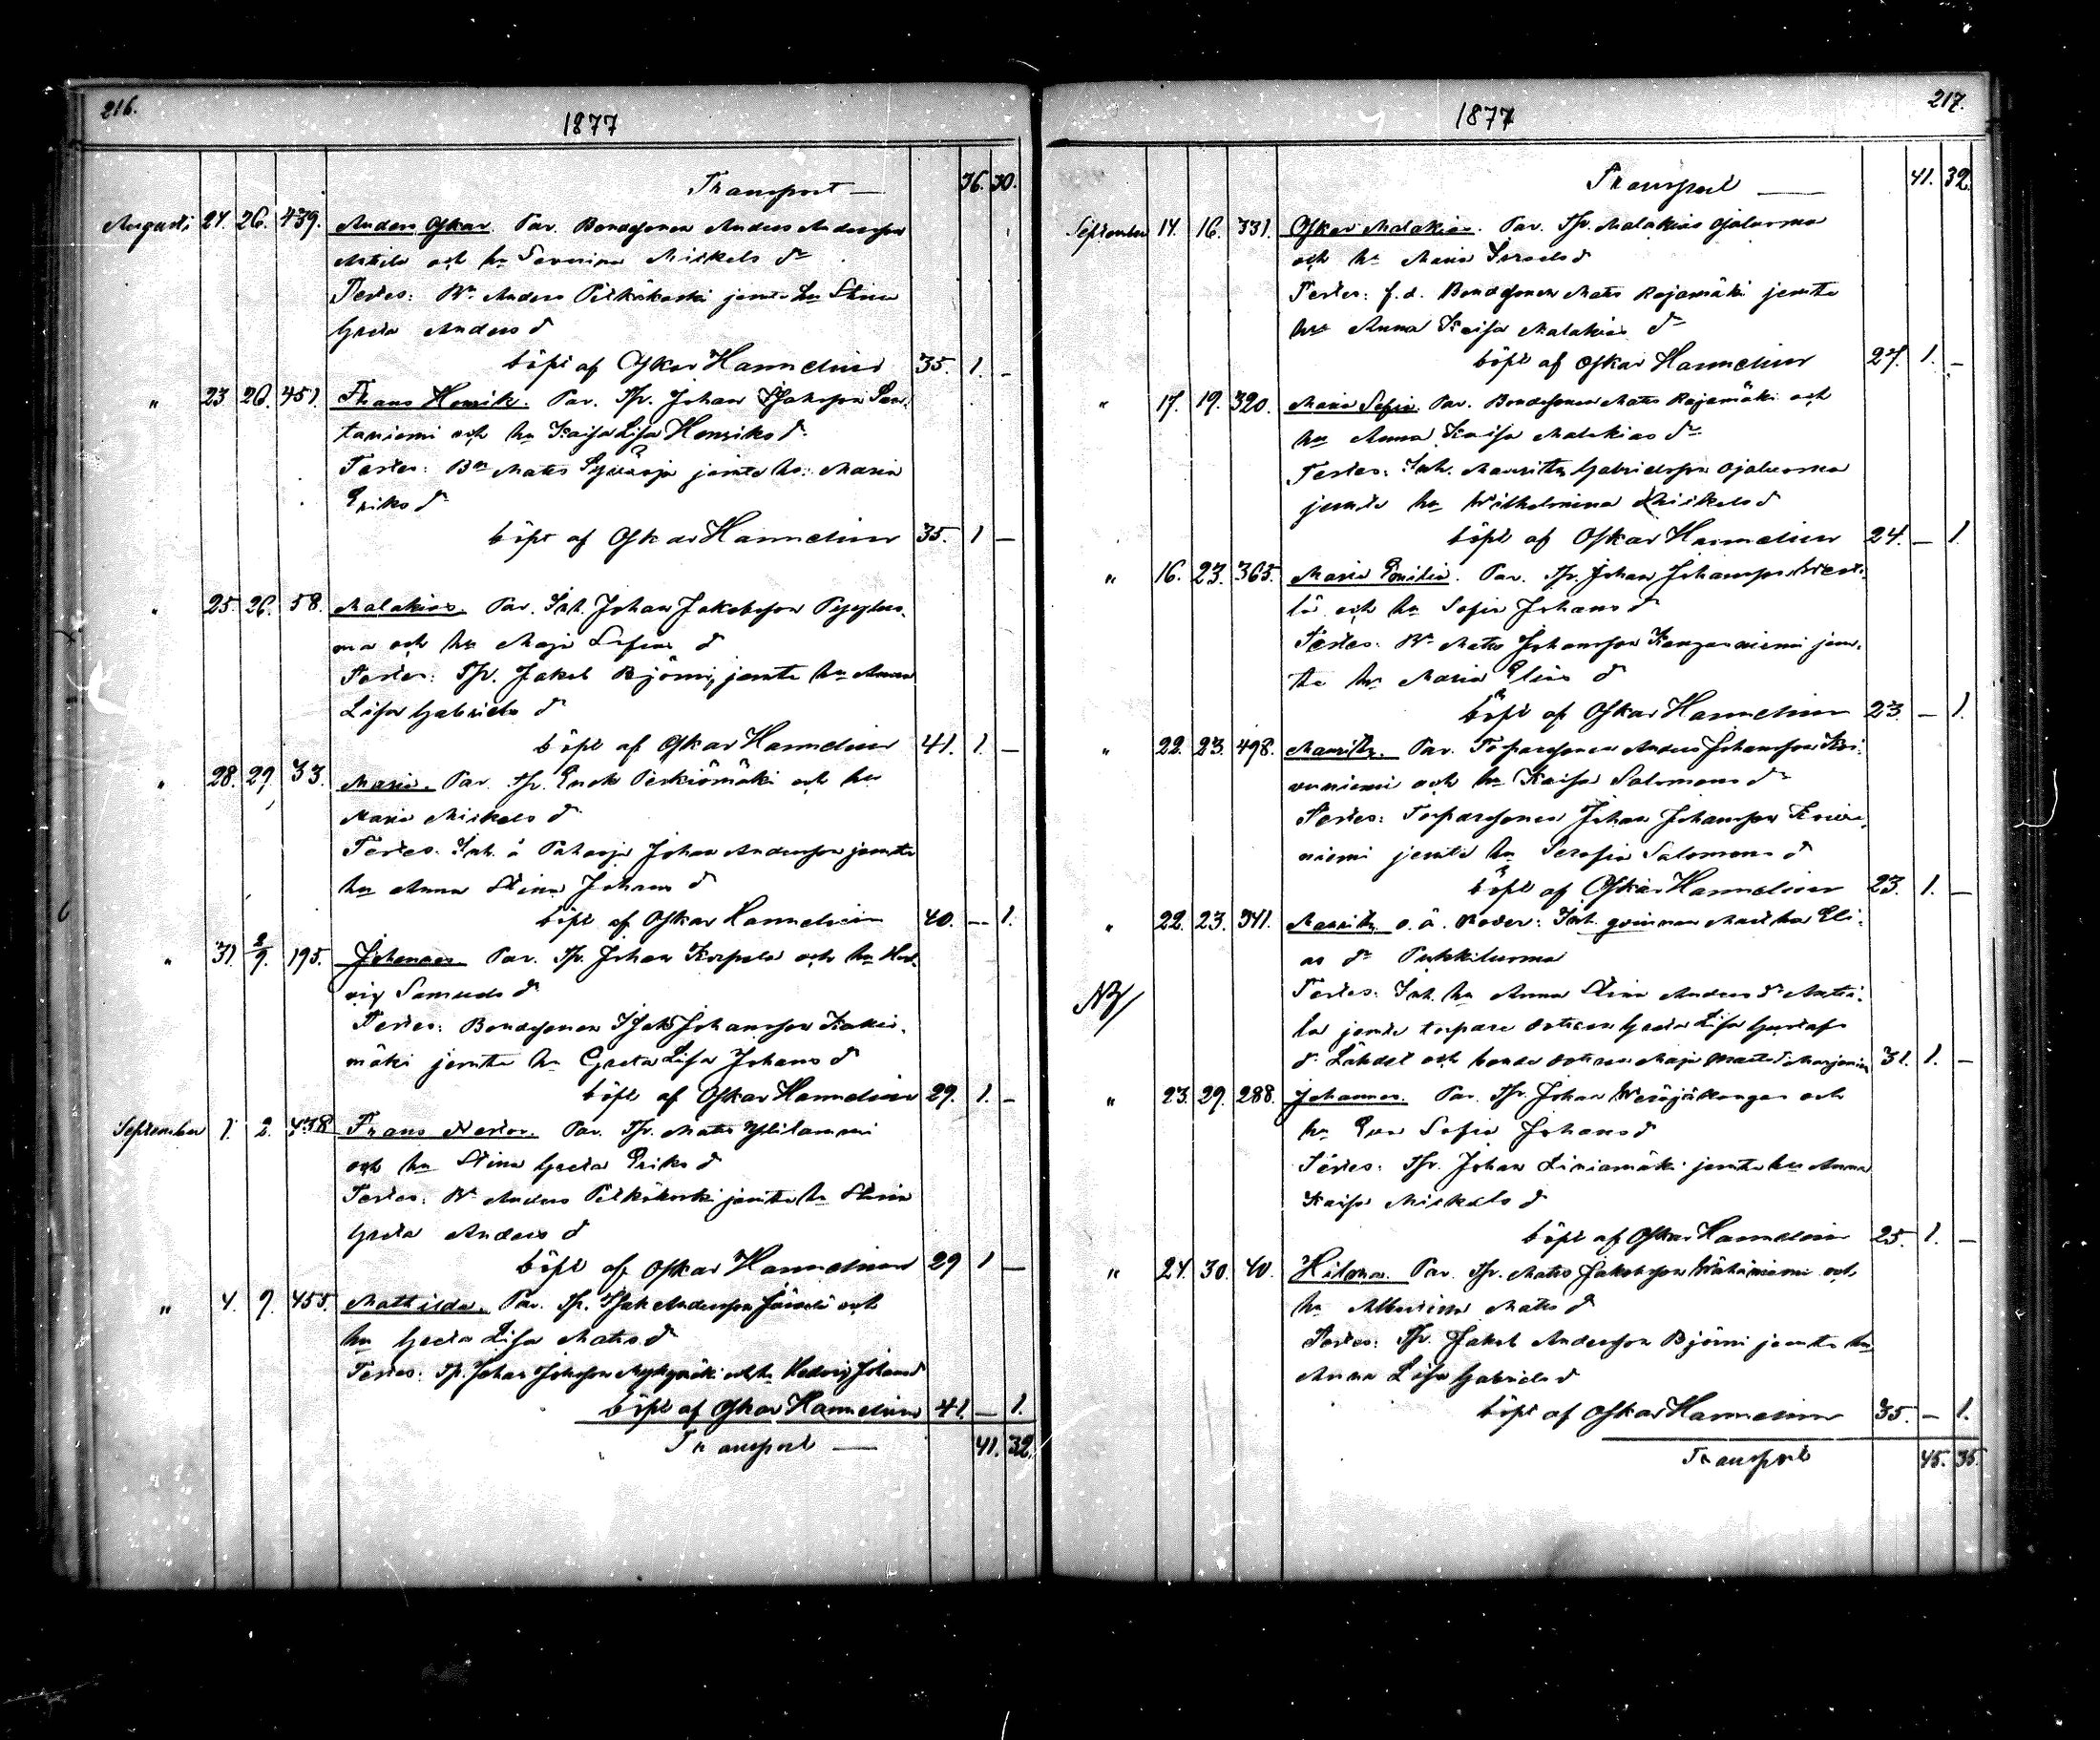 216.
1877
Transport — 36. 30.
Augusti 24. 26. 439. Anders Oskar. Par. Bondesonen Anders Andersson
Mikels dr
Testes: Bn Anders Pitkäkoski jemte hu Stina
Greta Anders dr
döpt af Oskar Hannelius 35. 1. –
" 23 26. 451. Frans Henrik. Par. Tp. Johan
och hu Kaisa Lisa Henriks dr
Testes: Bn Mats jemte hu: Maria
Eriks dr
döpt af Oskar Hannelius 35. 1 –
" 25. 26. 58. Malakias. Par. Inh. Johan Jakobsson
ma och hu Maja dr
Testes: Tp. Jakob Björni jemte hu Anna
Lisa Gabriels dr
döpt af Oskar Hannelius 41. 1. –
" 28. 29. 33. Maria. Par. Tp. Enok och hu
Maria Mickels dr
Testes. Inh. å Johan Andersson jemte
hu Anna Stina Johans dr
döpt af Oskar Hannelius 40. – 1.
" 31. 2/9. 195. Johannes. Par. Tp. Johan Korpela och hu Hed-
vig Samuels dr
Testes: Bondesonen Isak Johansson
mäki jemte hu Greta Lisa Johans dr
döpt af Oskar Hannelius 29. 1. –
September 1. 2. 438 Frans Nestor. Par. Tp. Mats Ylilammi
och hu Stina Greta Eriks dr
Testes: Bn Anders Pitkäkoski jemte hu Stina
Greta Anders dr
döpt af Oskar Hannelius 29 1 –
" 4. 9. 455. Mathilda. Par. Tp. Isak Andersson och
hu Greta Lisa Mats dr
Testes: Tp. Johan och hu Hedvig Johans dr
döpt af Oskar Hannelius 41. – 1.
Transport — 41. 32.
217.
1877
Transport — 41. 32.
September 14. 16. 331. Oskar Malakias. Par. Tp. Malakias Ojaluoma
och hu Maria Israels dr
Testes: f.d. Bondesonen Mats Rajamäki jemte
hu Anna Kaisa Malakias dr
döpt af Oskar Hannelius 27. 1. –
" 17. 19. 320. Maria Sofia. Par. Bondesonen Mats Rajamäki och
hu Anna Kaisa Malakias dr
Testes: Inh. Mauritz Gabrielsson Ojaluoma
jemte hu Wilhelmina Mickels dr
döpt af Oskar Hannelius 24. – 1.
" 16. 23. 365. Maria Emilia. Par. Tp. Johan Johansson
lä och hu Sofia Johans dr
Testes: Bn Mats Johansson Kangasniemi jem-
te hu Maria Elias dr
döpt af Oskar Hannelius 23. – 1.
" 22. 23. 498. Mauritz. Par. Torparesonen Anders Johansson Koi-
vuniemi och hu Kaisa Salomons dr
Testes: Torparesonen Johan Johansson
niemi jemte hu Serafia Salomons dr
döpt af Oskar Hannelius 23. 1. –
" 22. 23. 341. Mauritz o.ä. Moder: Inh. qvinnan Maria Eli-
as dr
NB/ Testes: Inh. hu Anna Stina Anders dr
la jemte torpare dottren Greta Lisa Gustafs
dr Lähdet och bonde dottren Maja 31. 1. –
" 23. 29. 288. Johannes. Par. Tp. Johan Wesajäkangas och
hu Eva Sofia Johans dr
Testes: Tp. Johan Liniamäki jemte hu Anna
Kaisa Mickels dr
döpt af Oskar Hannelius 25. 1. –
" 24. 30. 40. Hilma. Par. Tp. Mats Jakobsson och
hu Albertina Mats dr
Testes: Tp. Jakob Andersson Björni jemte hu
Anna Lisa Gabriels dr
döpt af Oskar Hannelius 35. – 1.
Transport 45. 35.